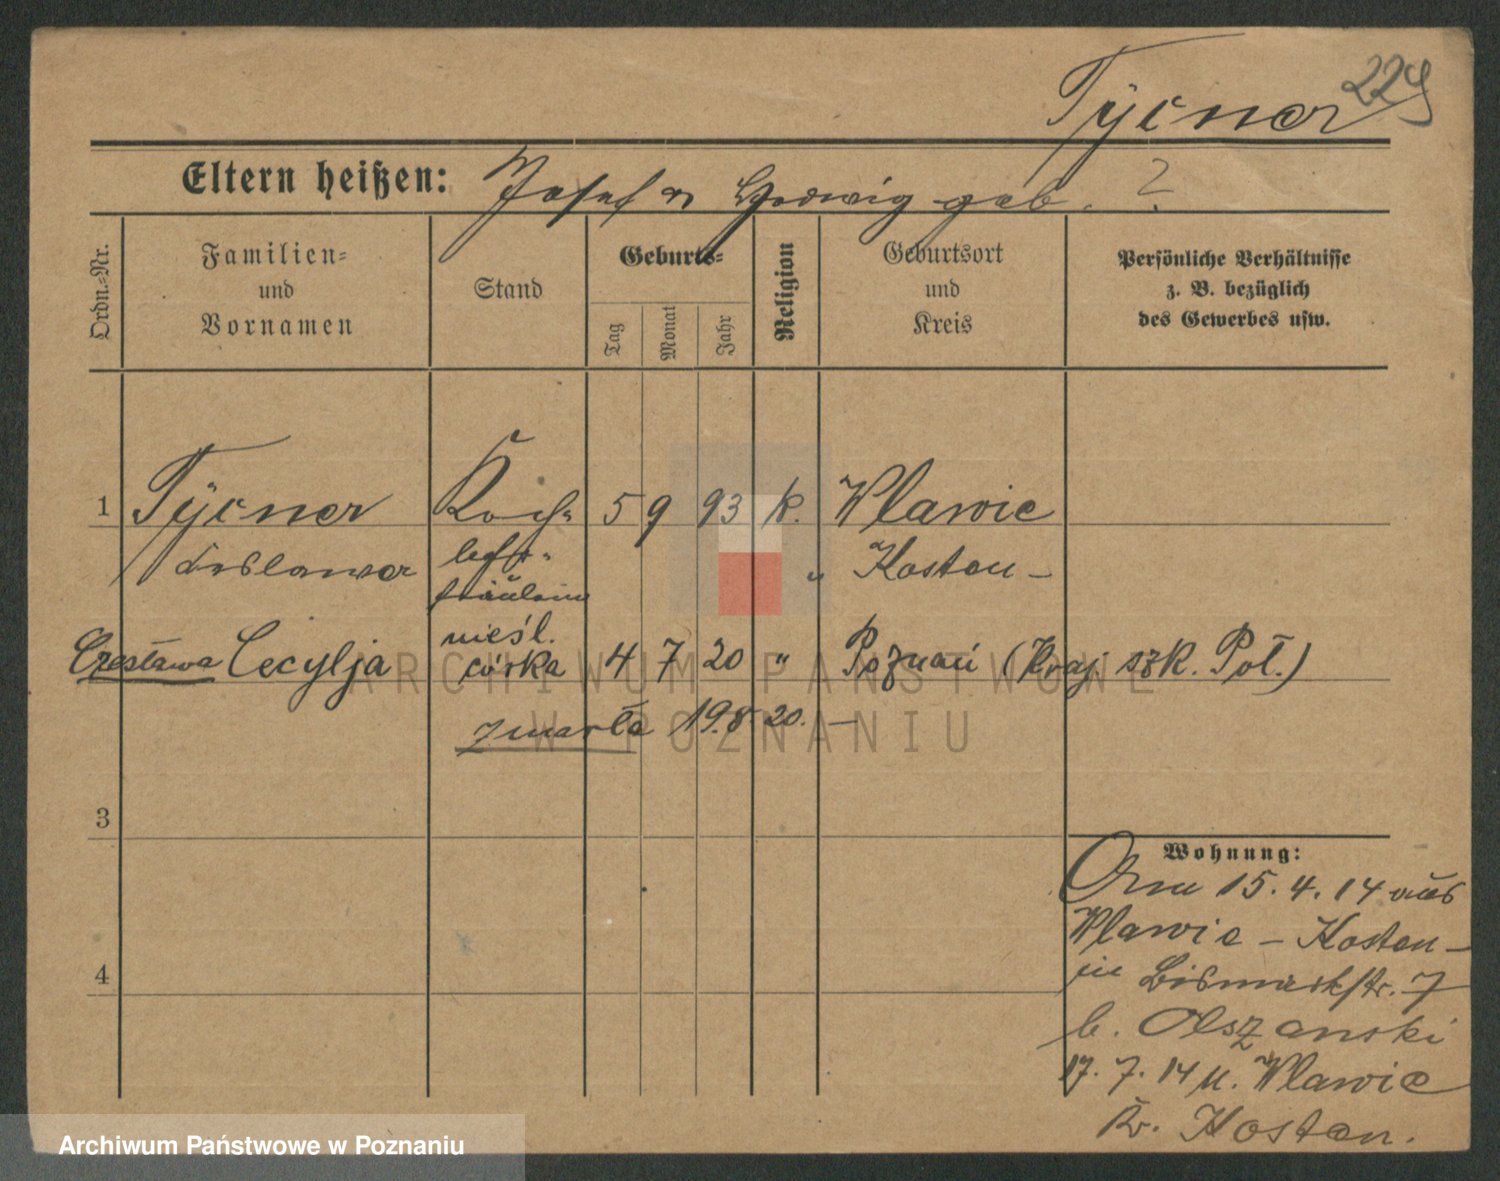 Tycner 224
Eltern heißen: Josef u Hedwig geb. ?
Ordn.-Nr.
Familien- und Vornamen
Stand
Geburts-
Tag
Monat
Jahr
Religion
Geburtsort und Kreis
Persönliche Verhältnisse
z. B. bezüglich
des Gewerbes usw.
1 Tycner Koch- 5 9 93 k. Wlawie
lehr- " Kosten
fräulein
nieśl.
Czesława Cecylja córka 4 7 20 " Poznań (Kraj. szk. Poł.)
zmarła 19.8 20.
3
4
Wohnung:
Am 15.4.14 aus
Wlawie - Kosten
in Bismarkstr. 7
b. Olszanski
17.7.14 n. Wlawie
Kr. Kosten.
ARCHIWUM PAŃSTWOWE
W POZNANIU
Archiwum Państwowe w Poznaniu